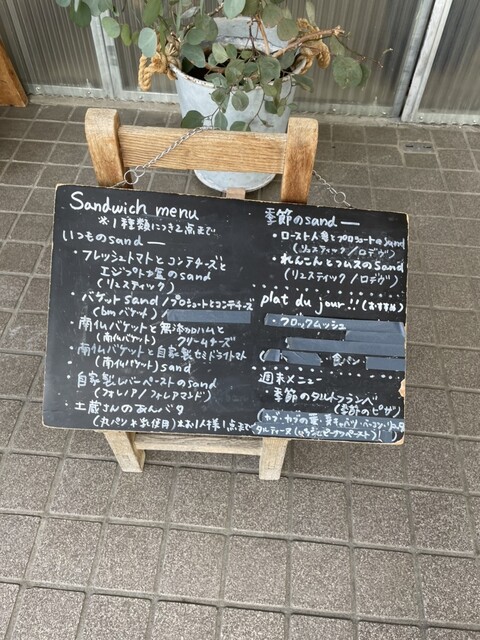 Sandwich menu
※1種類につき2点まで
いつものsand—
・フレッシュトマトとコンテチーズと
エジプト塩のsand
(リュスティック)
・バゲットsand/プロシュートとコンテチーズ
(bmバゲット)/
・南仏バゲットと無添加ハムと
(南仏バゲット) クリームチーズ
・南仏バゲットと自家製セミドライトマト
(南仏バゲット) sand
・自家製レバーペーストのsand
(フォレノア/フォレアマンド)
・土蔵さんのあんバタ
(丸パン 使用)※お1人様1点まで
季節のsand—
・ロースト人参とプロシュートのsand
(リュスティック/ロデヴ)
・れんこんとフムスのsand
(リュスティック/ロデヴ)
plat du jour!!(おすすめ)
・クロックムッシュ
食パン
週末メニュー
・季節のタルトフランベ
(季節のピザ)
(カブ・カブの葉・
タルティーヌ